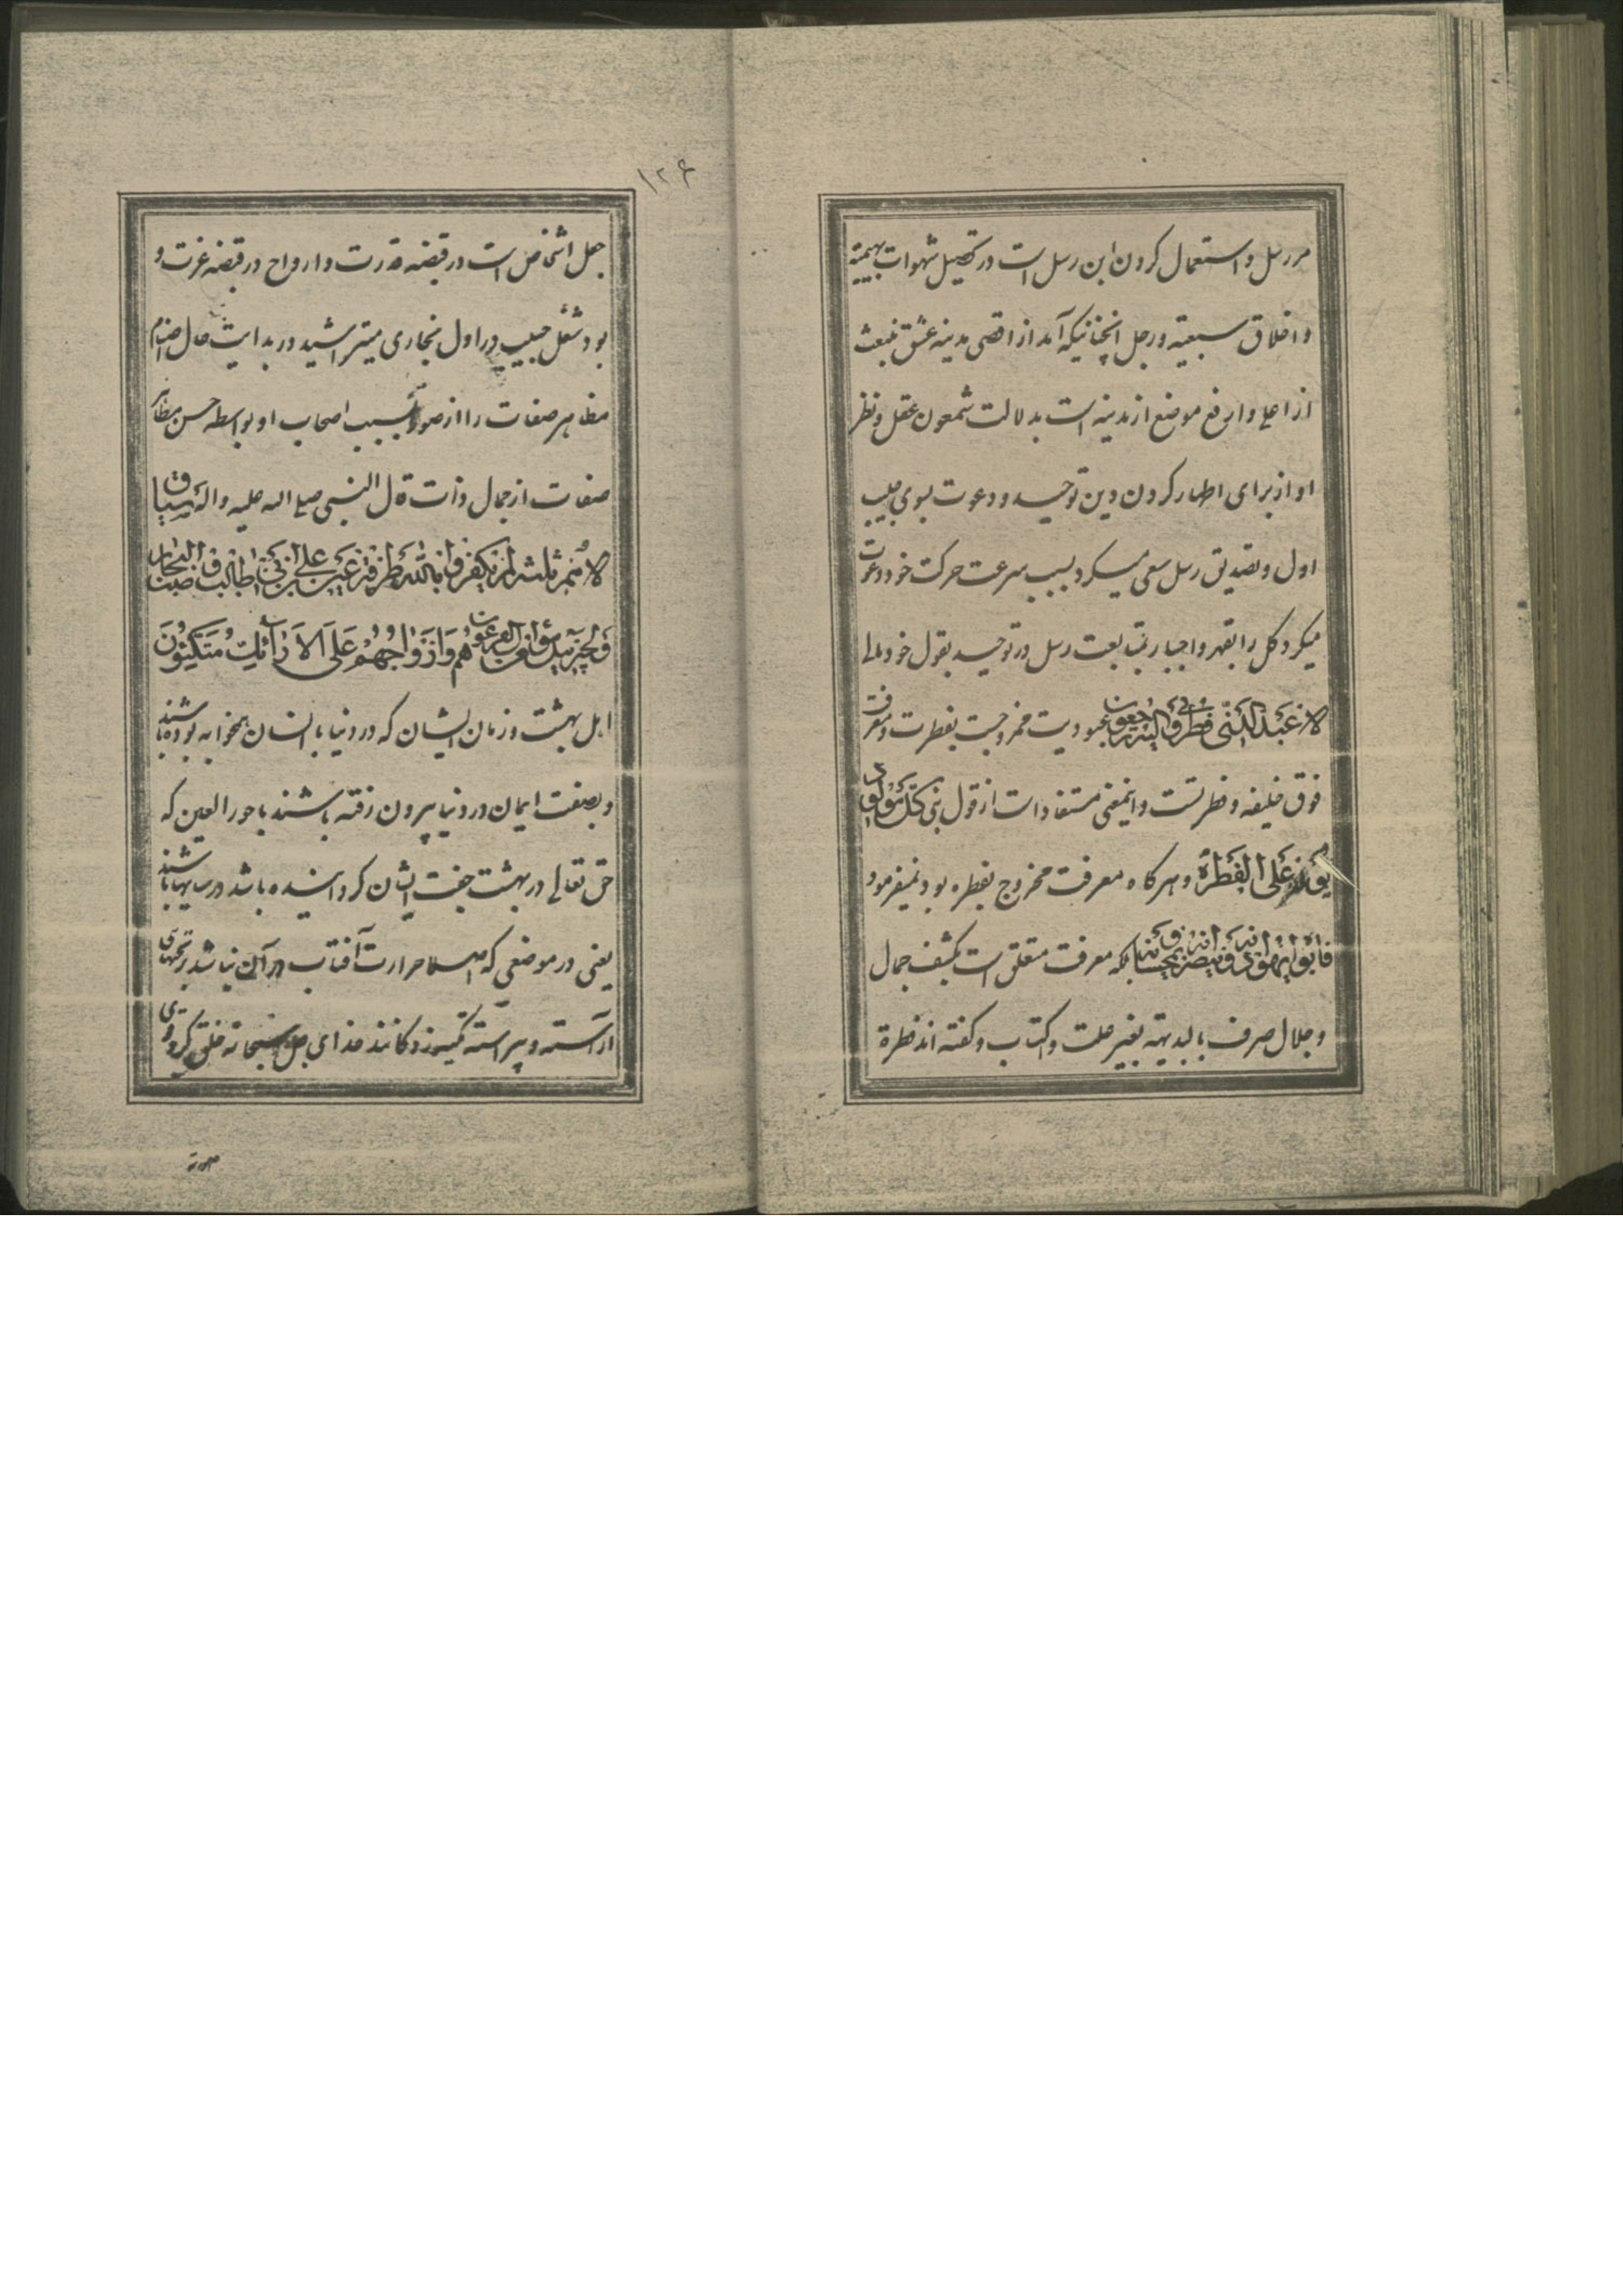 مر رسل و استعمال کردن این رسل است در تحصیل شهوات بهیمیه
و اخلاق سبعیه و رجل انچنانیکه آمد از اقصی مدینه عشق منبعث
از اعلی و ارفع موضع از مدینه است بدلالت شمعون عقل و نظر
او از برای اظهار کردن دین توحید و دعوت بسوی حبیب
اول و تصدیق رسل سعی میکرد بسبب سرعت حرکت خود و دعوت
میکرد کل را بقهر و اجبار بمتابعت رسل در توحید بقول خود مالی
لا اعبد الذی فطرنی و الیه ترجعون عبودیت ممزوجست بفطرت و معرفت
فوق خلیفه و فطرتست و اینمعنی مستفاد است از قول نبی کل مولود
یولد علی الفطرة و هر گاه معرفت ممزوج بفطره بود نمیفرمود
فابواه یهودانه و ینصرانه و یمجسانه بلکه معرفت متعلق است بکشف جمال
و جلال صرف بالبدیهة بغیر علت و اکتساب و گفته اند فطرة
۱۲۶
جعل اشخاص است در قبضه قدرت و ارواح در قبضه عزت و
بود شغل حبیب در اول نجاری میتراشید در بدایت حال اصنام
مظاهر صفات را از صور بسبب احتجاب او بواسطه حسن مظاهر
صفات از جمال ذات قال النبی صلی الله علیه و اله سباق
الامم ثلثة لم یکفروا بالله طرفة عین علی بن ابی طالب و صاحب
هم و ازواجهم علی الارائک متکئون
اهل بهشت و زنان ایشان که در دنیا با ایشان همخوابه بوده باشند
و بصفت ایمان در دنیا بیرون رفته باشند با حور العین که
حق تعالی در بهشت جفت ایشان کردانیده باشد در سایها باشند
یعنی در موضعی که اصلا حرارت آفتاب در آن نباشد بر تختهای
آراسته و پیراسته تکیه زدکانند خدای جل سبحانه خلق کرد
صورت